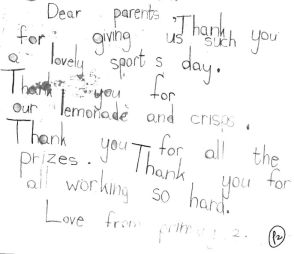 Dear parents Thank you
for giving us such
a lovely sport s day.
Thank you for
our lemonade and crisps.
Thank you for all the
prizes. Thank you for
all working so hard.
Love from primary 2.
P2